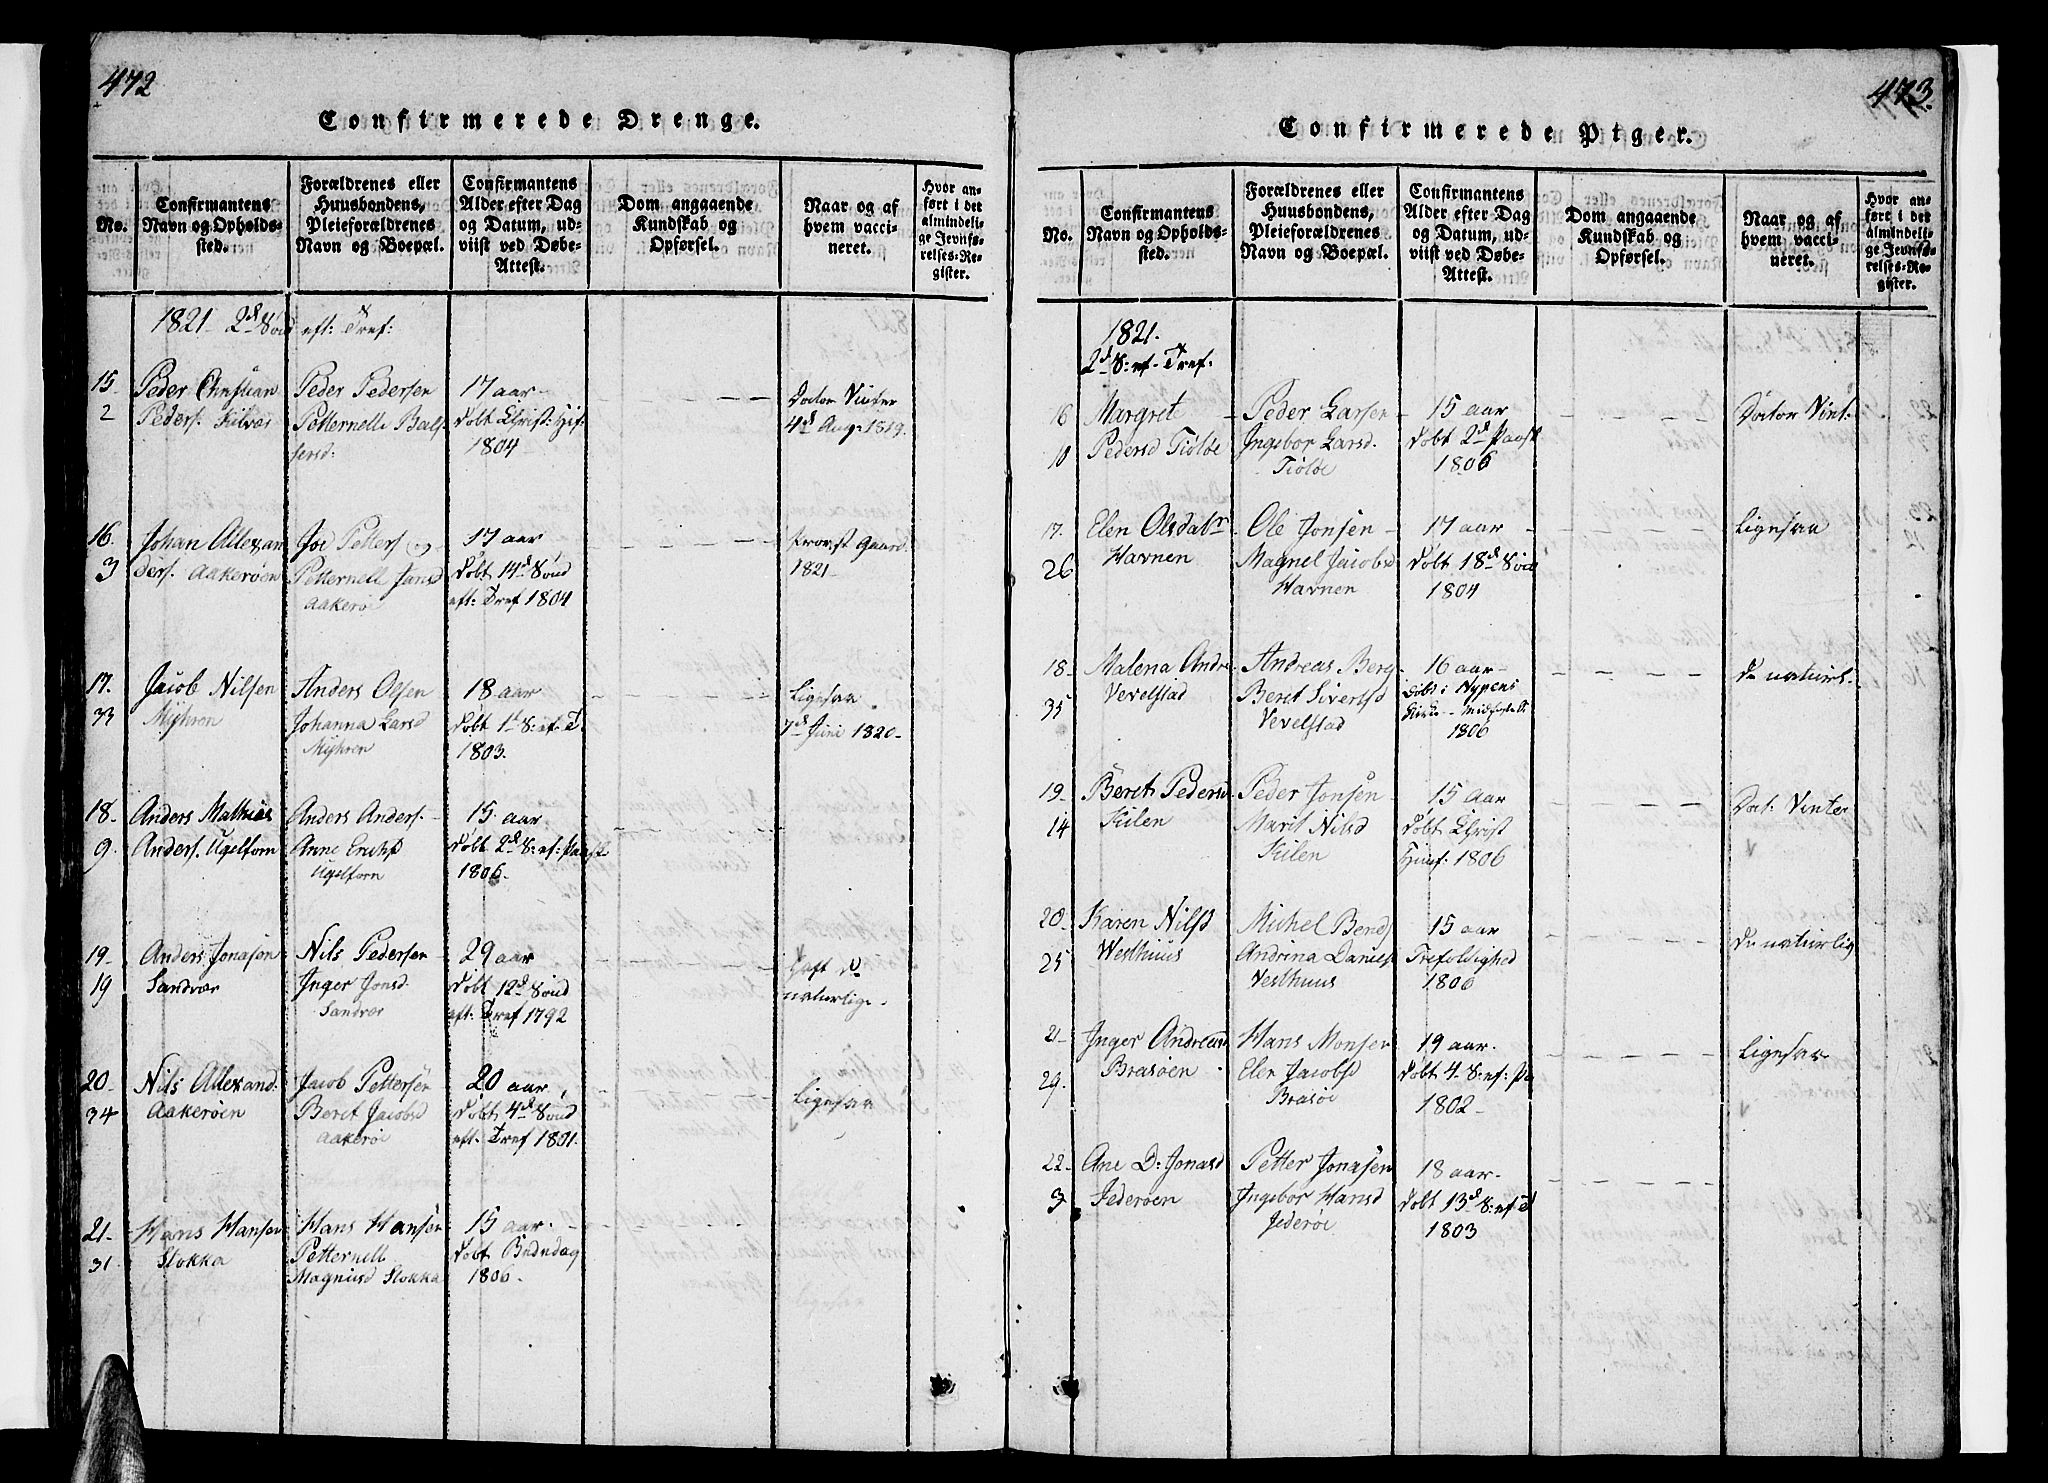 472
Confirmerede Drenge.
No.
Confirmantens
Navn og Opholds-
sted.
Forældrenes eller
Huusbondens,
Pleieforældrenes
Navn og Boepæl.
Confirmantens
Alder efter Dag
og Datum, ud-
viist ved Døbe-
Attest.
Dom angaaende
Kundskab og
Opførsel.
Naar og af
hvem vacci-
neret.
Hvor an-
ført i det
almindeli-
ge Jevnfø-
relses-Re-
gister.
1821 2d Sönd eft: Tref:
15
2
Peder Christian
Peders.
Peder Pedersen
Petternelle Balt-
sersd:
17 aar
Døbt Christ: Hif:
1804
Doctor Vinter
4d Aug: 1819.
16.
3
Johan Allexan
ders. Aakerøen
Joe Petters og
Petternell Jansd
Aakerøe
17 aar
Døbt 14d Sönd
eft: Tref 1804
Provst Gaard.
1821
17.
33
Jacob Nilsen
Myhren
Anders Olsen
Johanna Larsd
Myhren
18 aar
Døbt 1d S: ef. T.
1803.
Ligesaa
7d Juni 1820
18
9.
Anders Mathias
Anders. Ugelforn
Anders Anders.
Anne Erichsd
Ugelforn
15 aar
Døbt 2d S: ef: Paask
1806.
19
19
Anders Jonasen
Sandvær
Nils Pedersen
Inger Jonsd.
Sandvær
29 aar
Døbt 12d Sönd
eft: Tref 1792
haft de
naturlige
20
34
Nils Allexand.
Aakerøen
Jacob Pettersen
Beret Jacobsd
Aakerøe
20 aar
Døbt 4d Sönd
eft: Tref 1801.
Ligesaa
21
31
Hans Hansen
Stokka
Hans Hansen
Petternell
Magnusd Stokka
15 aar
Døbt Bededag
1806.
473.
Confirmerede Piger.
No.
Confirmantens
Navn og Opholds-
sted.
Forældrenes eller
Huusbondens,
Pleieforældrenes
Navn og Boepæl.
Confirmantens
Alder efter Dag
og Datum, ud-
viist ved Døbe-
Attest.
Dom angaaende
Kundskab og
Opførsel.
Naar og af
hvem vacci-
neret.
Hvor an-
ført i det
almindeli-
ge Jevnfø-
relses-Re-
gister.
1821.
2d S: ef. Tref:
16
10
Margret
Pedersd Tiøløe
Peder Larsen
Ingebor Larsd.
Tiøløe
15 aar
Døbt 2d Paask
1806
Doctor Vint:
17.
26
Elen Olsdatr
Havnen
Ole Jonsen
Magnel Jacobsd
Havnen
17 aar
Døbt 18d Sönd
1804
Ligesaa
18
35
Malena Andre
Vevelstad
Andreas Berg
Beret Sivertsd
Vevelstad
16 aar
Døbt i Nypens
Kirke
1806
De naturl.
19
14
Beret Pedersd
Kilen
Peder Jonsen
Marit Nilsd
Kilen
15 aar
Døbt Christ
Himf: 1806
Doct: Vinter
20
25
Karen Nilsd
Westhuus
Michel Bends
Andrina Daniels
Vesthuus
15 aar
Trefoldighed
1806
De naturlig
21
29.
Inger Andrea
Brasøen
Hans Monsen
Elen Jacobsd
Brasøe
19 aar.
Døbt 4 S: ef: Pa
1802
Ligesaa
22
3
Ane D: Jonasd
Jederøen
Petter Jonasen
Ingebor Hansd
Jederøe
18 aar
Døbt 13d S: ef T
1803